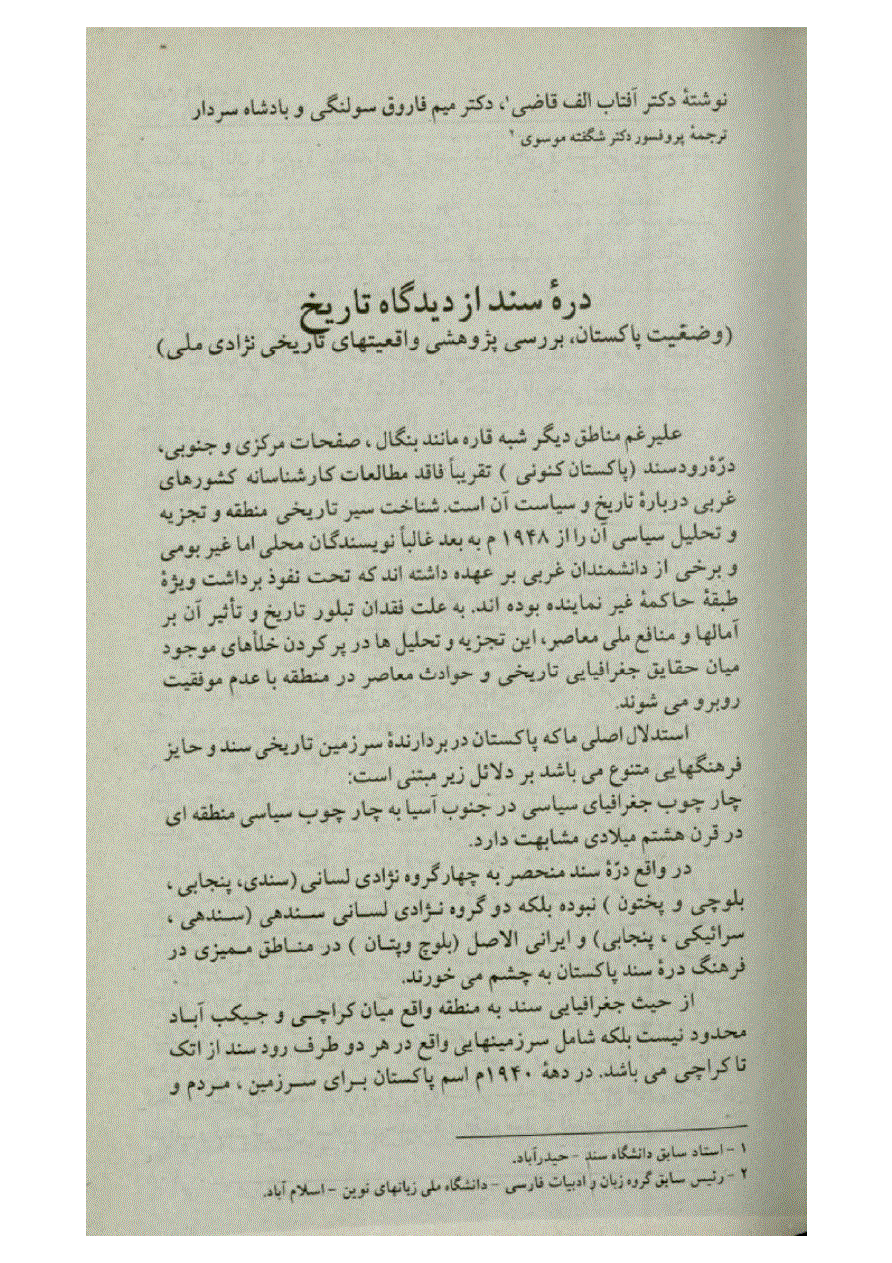 نوشتهٔ دکتر آفتاب الف قاضی۱، دکتر میم فاروق سولنگی و بادشاه سردار
ترجمهٔ پروفسور دکتر شگفته موسوی ۲
درهٔ سند از دیدگاه تاریخ
(وضقیت پاکستان، بررسی پژوهشی واقعیتهای تاریخی نژادی ملی)
علیرغم مناطق دیگر شبه قاره مانند بنگال ، صفحات مرکزی و جنوبی،
درّهٔ رود سند (پاکستان کنونی ) تقریباً فاقد مطالعات کارشناسانه کشورهای
غربی دربارهٔ تاریخ و سیاست آن است. شناخت سیر تاریخی منطقه و تجزیه
و تحلیل سیاسی آن را از ۱۹۴۸ م به بعد غالباً نویسندگان محلی اما غیر بومی
و برخی از دانشمندان غربی بر عهده داشته اند که تحت نفوذ برداشت ویژهٔ
طبقهٔ حاکمهٔ غیر نماینده بوده اند. به علت فقدان تبلور تاریخ و تأثیر آن بر
آمالها و منافع ملی معاصر، این تجزیه و تحلیل ها در پر کردن خلأهای موجود
میان حقایق جغرافیایی تاریخی و حوادث معاصر در منطقه با عدم موفقیت
روبرو می شوند.
استدلال اصلی ما که پاکستان در بردارندهٔ سرزمین تاریخی سند و حایز
فرهنگهایی متنوع می باشد بر دلائل زیر مبتنی است:
چار چوب جغرافیای سیاسی در جنوب آسیا به چار چوب سیاسی منطقه ای
در قرن هشتم میلادی مشابهت دارد.
در واقع درّهٔ سند منحصر به چهارگروه نژادی لسانی (سندی، پنجابی ،
بلوچی و پختون ) نبوده بلکه دو گروه نژادی لسانی سندهی (سندهی ،
سرائیکی ، پنجابی) و ایرانی الاصل (بلوچ وپتان ) در مناطق ممیزی در
فرهنگ درهٔ سند پاکستان به چشم می خورند.
از حیث جغرافیایی سند به منطقه واقع میان کراچی و جیکب آباد
محدود نیست بلکه شامل سرزمینهایی واقع در هر دو طرف رود سند از اتک
تا کراچی می باشد. در دههٔ ۱۹۴۰م اسم پاکستان برای سرزمین ، مردم و
۱ - استاد سابق دانشگاه سند - حیدرآباد.
۲ - رئیس سابق گروه زبان و ادبیات فارسی - دانشگاه ملی زبانهای نوین - اسلام آباد.